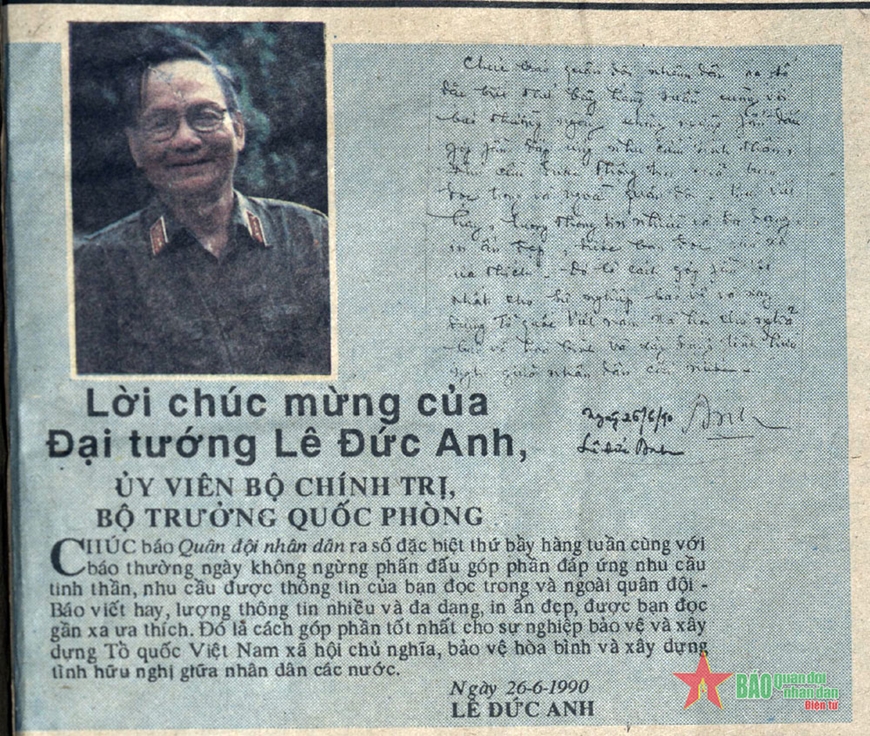 Chúc báo quân đội nhân dân ra số
đặc biệt thứ bảy hàng tuần cùng với
báo thường ngày không ngừng phấn đấu
góp phần đáp ứng nhu cầu tinh thần,
nhu cầu được thông tin của bạn
đọc trong và ngoài quân đội
hay, lượng thông tin nhiều và đa dạng,
in ấn đẹp, được bạn đọc gần xa
ưa thích. Đó là cách góp phần tốt
nhất cho sự nghiệp bảo vệ và xây
dựng Tổ quốc Việt Nam xã hội chủ nghĩa
bảo vệ hòa bình và xây dựng tình hữu
nghị giữa nhân dân các nước.
Ngày 26/6/90
Lê Đức Anh
Lời chúc mừng của
Đại tướng Lê Đức Anh,
ỦY VIÊN BỘ CHÍNH TRỊ,
BỘ TRƯỞNG QUỐC PHÒNG
CHÚC báo Quân đội nhân dân ra số đặc biệt thứ bầy hàng tuần cùng với
báo thường ngày không ngừng phấn đấu góp phần đáp ứng nhu cầu
tinh thần, nhu cầu được thông tin của bạn đọc trong và ngoài quân đội -
Báo viết hay, lượng thông tin nhiều và đa dạng, in ấn đẹp, được bạn đọc
gần xa ưa thích. Đó là cách góp phần tốt nhất cho sự nghiệp bảo vệ và xây
dựng Tổ quốc Việt Nam xã hội chủ nghĩa, bảo vệ hòa bình và xây dựng
tình hữu nghị giữa nhân dân các nước.
Ngày 26-6-1990
LÊ ĐỨC ANH
BÁO Quân đội
nhân dân
Điện tử